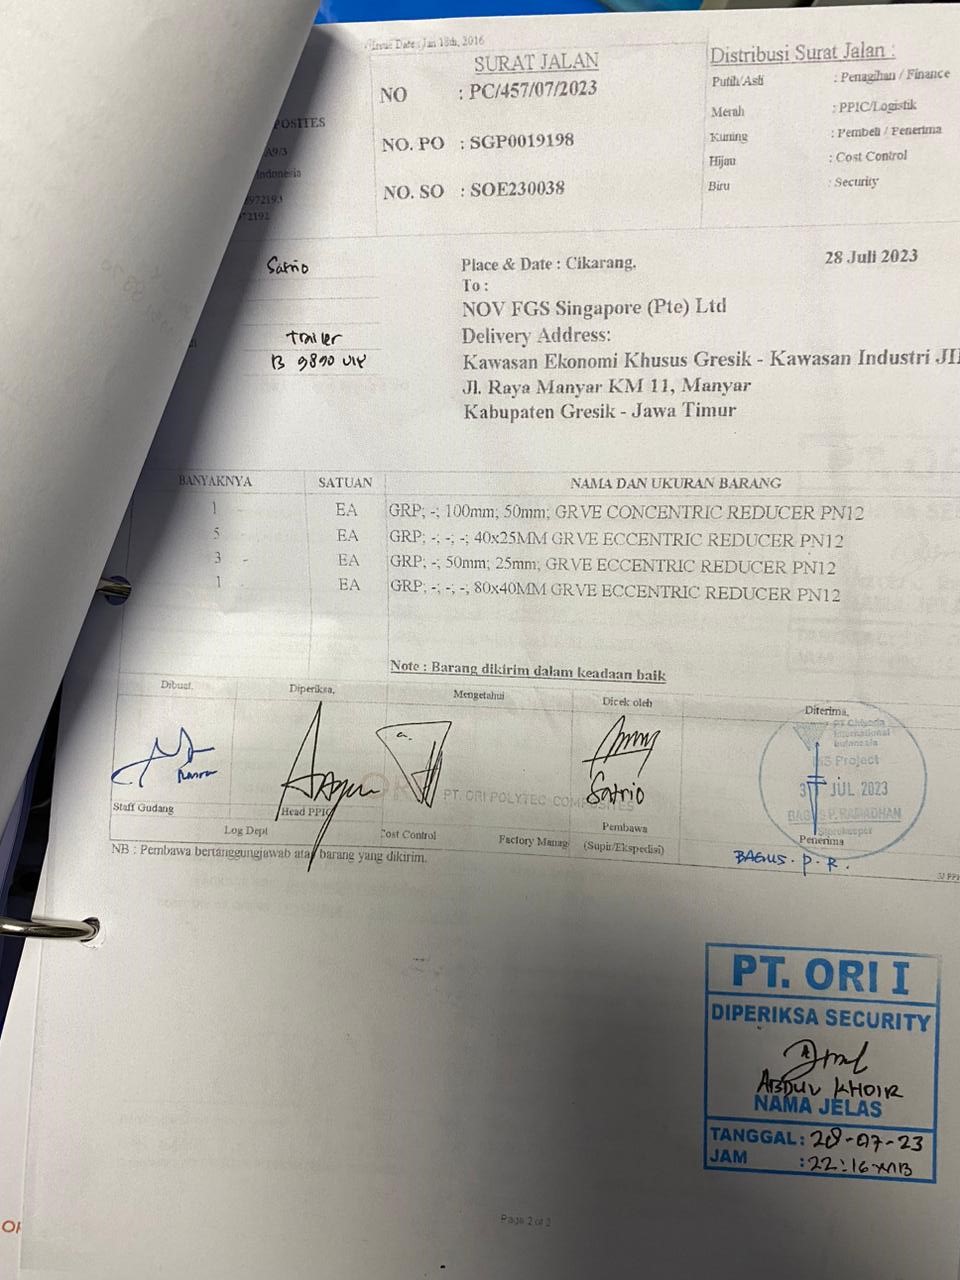 Issue Date : Jan 18th, 2016
SURAT JALAN
NO : PC/457/07/2023
NO. PO : SGP0019198
NO. SO : SOE230038
Distribusi Surat Jalan :
Putih/Asli : Penagihan / Finance
Merah : PPIC/Logistik
Kuning : Pembeli / Penerima
Hijau : Cost Control
Biru : Security
POSITES
A9/3
Indonesia
972193
72192
Satrio
Trailer
B 9890 UIY
Place & Date : Cikarang, 28 Juli 2023
To :
NOV FGS Singapore (Pte) Ltd
Delivery Address:
Kawasan Ekonomi Khusus Gresik - Kawasan Industri JII
Jl. Raya Manyar KM 11, Manyar
Kabupaten Gresik - Jawa Timur
BANYAKNYA SATUAN NAMA DAN UKURAN BARANG
1 EA GRP; -; 100mm; 50mm; GRVE CONCENTRIC REDUCER PN12
5 EA GRP; -; -; -; 40x25MM GRVE ECCENTRIC REDUCER PN12
3 EA GRP; -; 50mm; 25mm; GRVE ECCENTRIC REDUCER PN12
1 EA GRP; -; -; -; 80x40MM GRVE ECCENTRIC REDUCER PN12
Note : Barang dikirim dalam keadaan baik
Dibuat, Diperiksa, Mengetahui Dicek oleh Diterima,
PT Chiyoda
International
Indonesia
Project
JUL 2023
BAGUS P. RAMADHAN
Storekeeper
PT. ORI POLYTEC COMPOSITES
Satrio
Staff Gudang Head PPIC Cost Control Factory Manag Pembawa Penerima
Log Dept (Supir/Ekspedisi)
BAGUS. P. R.
NB : Pembawa bertanggungjawab atas barang yang dikirim.
PT. ORI I
DIPERIKSA SECURITY
ABDUL KHOIR
NAMA JELAS
TANGGAL : 28-07-23
JAM : 22:16 WIB
Page 2 of 2